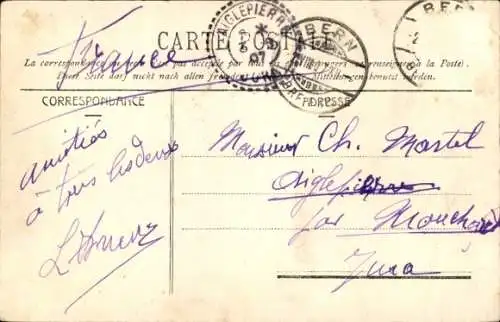 France
CARTE POSTALE
AIGLEPIERRE
BERN
BER
La correspondance au recto n'est pas acceptée par tous les pays étrangers (se renseigner à la Poste).
Diese Seite darf nicht nach allen fremden Ländern zu Mitteilungen benutzt werden.
CORRESPONDANCE
ADRESSE
BRF
amitiés
à tous les deux
Monsieur Ch. Martel
Aiglepierre
par Mouchard
Jura